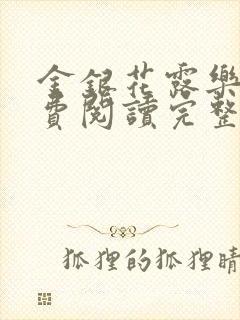 金銀花露樂
費閱讀完整
狐狸的狐狸晴